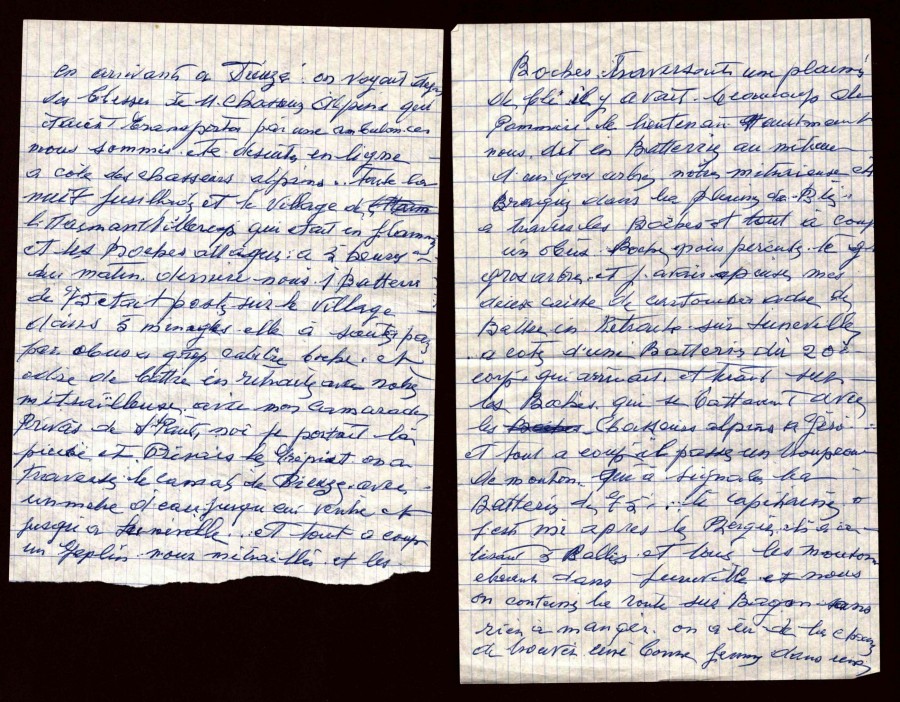 en arrivant a Dieuze on voyait deja
des blesser de 11. chasseurs Alpins qui
etaient transporter par une ambulances
nous sommes ete desuite en ligne
a cote des chasseurs alpins.. toute la
nuit fusillade et le village de
qui etait en flamme
et les Boches attaque: a 3 heures
du matin. derriere nous 1 Batterie
de 75 etait poste sur le village
dans 5 minutes elle a sauter par
par obus a gros calibre boche. et
ordre de battre en retraite avec notre
mitrailleuse. avec mon camarade
Privas de St Paul, moi je portait la
piece et le trepied on a
traverse le canal de Dieuze avec
un metre d'eau jusqu'au ventre et
jusqu a Luneville.. et tout a coup
un Zeplin nous mitrailler et les
Boches. Traversant une plaine
de blé il y avait beaucoup de
Pommier. le lieutenan
nous dit en Batterie au milieu
d'un gros arbre notre mitrailleuse et
Braquer dans la plaine de Blé
a travers les Boches et tout à coup
un obus Boche nous percute le
gros arbre. et j'avais epuiser mes
deux caisse de cartouches ordre de
Battre en Retraite sur Luneville
a cote d'une Batterie du 20e
corp qui arrivait. et tirait sur
les Boches qui se battaient avec
les Chasseurs alpins a
et tout a coup il passe un troupeau
de mouton qui a signaler la
Batterie de 75... le capitaine a
fait mi apres le Berger et a
5 Balles et tous les mouton
dans Luneville et nous
on continue la route sur Bayon sans
rien a manger. on a eu de la chance
de trouver une bonne femme dans une